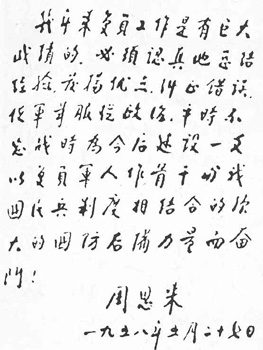 几年来复员工作是有巨大
成绩的，必须认真地总结
经验，发扬优点，纠正错误，
使军事服从政治，平时不
忘战时，为今后建设一支
以复员軍人作骨干的我
國民兵制度相结合的強
大的國防后備力量而奋
鬥！
周恩来
一九五八年五月二十七日